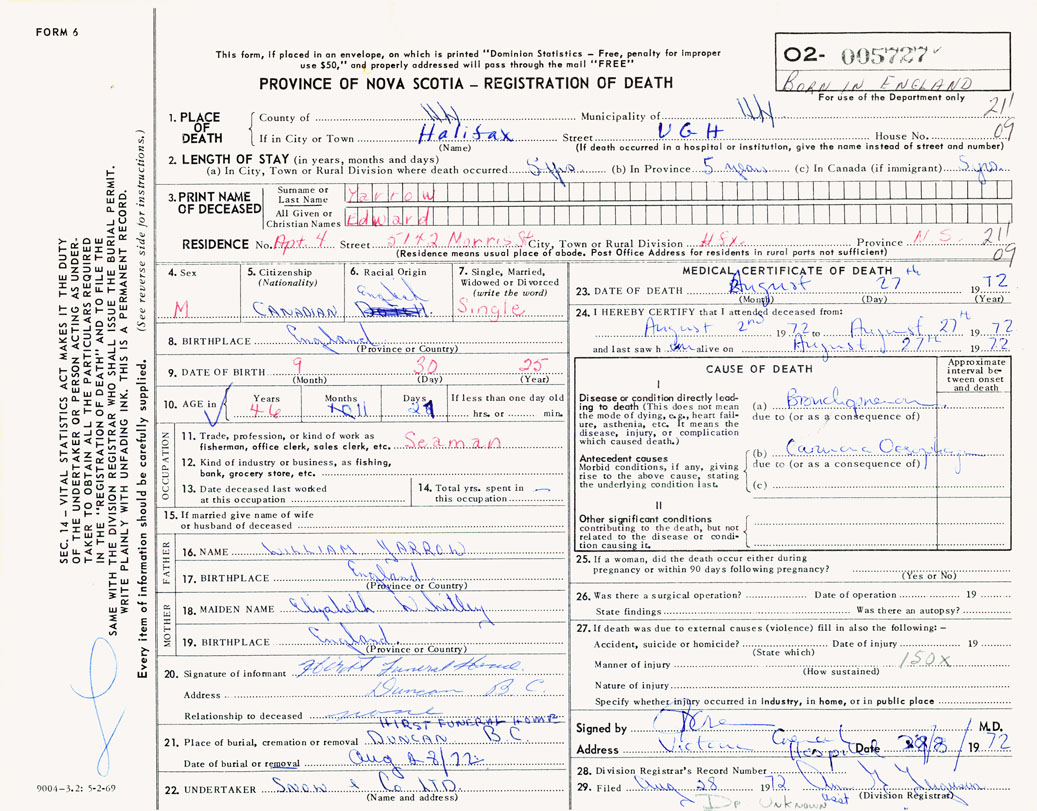 FORM 6
This form, if placed in an envelope, on which is printed "Dominion Statistics – Free, penalty for improper
use $50," and properly addressed will pass through the mail "FREE"
PROVINCE OF NOVA SCOTIA – REGISTRATION OF DEATH
02- 005727
BORN IN ENGLAND
For use of the Department only
211
09
1. PLACE OF DEATH
County of Municipality of
If in City or Town Halifax Street VGH House No.
(Name) (If death occurred in a hospital or institution, give the name instead of street and number)
2. LENGTH OF STAY (in years, months and days)
(a) In City, Town or Rural Division where death occurred 5 yrs (b) In Province 5 years (c) In Canada (if immigrant) 5 yrs.
3. PRINT NAME OF DECEASED
Surname or Last Name Yarrow
All Given or Christian Names Edward
RESIDENCE No. Apt. 4 Street 5142 Morris St City, Town or Rural Division Hfx. Province N S
(Residence means usual place of abode. Post Office Address for residents in rural parts not sufficient)
211
09
4. Sex M
5. Citizenship (Nationality) CANADIAN
6. Racial Origin English
7. Single, Married, Widowed or Divorced (write the word) Single
8. BIRTHPLACE England
(Province or Country)
9. DATE OF BIRTH 9 30 25
(Month) (Day) (Year)
10. AGE in Years 46 Months 11 Days If less than one day old
hrs. or min.
OCCUPATION
11. Trade, profession, or kind of work as fisherman, office clerk, sales clerk, etc. Seaman
12. Kind of industry or business, as fishing, bank, grocery store, etc.
13. Date deceased last worked at this occupation
14. Total yrs. spent in this occupation —
15. If married give name of wife or husband of deceased
FATHER
16. NAME WILLIAM YARROW
17. BIRTHPLACE England
(Province or Country)
MOTHER
18. MAIDEN NAME Elizabeth Whitley
19. BIRTHPLACE England
(Province or Country)
20. Signature of informant Hirst Funeral Home
Address Duncan B C.
Relationship to deceased none
HIRST FUNERAL HOME
21. Place of burial, cremation or removal DUNCAN B.C.
Date of burial or removal Aug 28/72
22. UNDERTAKER SNOW & Co LTD.
(Name and address)
MEDICAL CERTIFICATE OF DEATH
23. DATE OF DEATH August 27th 1972
(Month) (Day) (Year)
24. I HEREBY CERTIFY that I attended deceased from:
August 2nd 1972 to August 27th 1972
and last saw him alive on August 27th 1972
CAUSE OF DEATH
Approximate interval between onset and death
I
Disease or condition directly leading to death (This does not mean the mode of dying, e.g., heart failure, asthenia, etc. It means the disease, injury, or complication which caused death.)
(a)
due to (or as a consequence of)
Antecedent causes
Morbid conditions, if any, giving rise to the above cause, stating the underlying condition last.
(b)
due to (or as a consequence of)
(c)
II
Other significant conditions
contributing to the death, but not related to the disease or condition causing it.
25. If a woman, did the death occur either during
pregnancy or within 90 days following pregnancy?
(Yes or No)
26. Was there a surgical operation? Date of operation 19
State findings Was there an autopsy?
27. If death was due to external causes (violence) fill in also the following: –
Accident, suicide or homicide? Date of injury 19
(State which)
Manner of injury 150X
(How sustained)
Nature of injury
Specify whether injury occurred in industry, in home, or in public place
Signed by M.D.
Address Victoria General Hospital Date 28/8/ 1972
28. Division Registrar's Record Number
29. Filed Aug 28 1972
(Division Registrar)
Dr Unknown
SEC. 14 – VITAL STATISTICS ACT MAKES IT THE DUTY
OF THE UNDERTAKER OR PERSON ACTING AS UNDERTAKER TO OBTAIN ALL THE PARTICULARS REQUIRED
IN THE "REGISTRATION OF DEATH" AND TO FILE THE
SAME WITH THE DIVISION REGISTRAR WHO SHALL ISSUE THE BURIAL PERMIT.
WRITE PLAINLY WITH UNFADING INK. THIS IS A PERMANENT RECORD.
Every item of information should be carefully supplied. (See reverse side for instructions.)
9004–3.2: 5-2-69